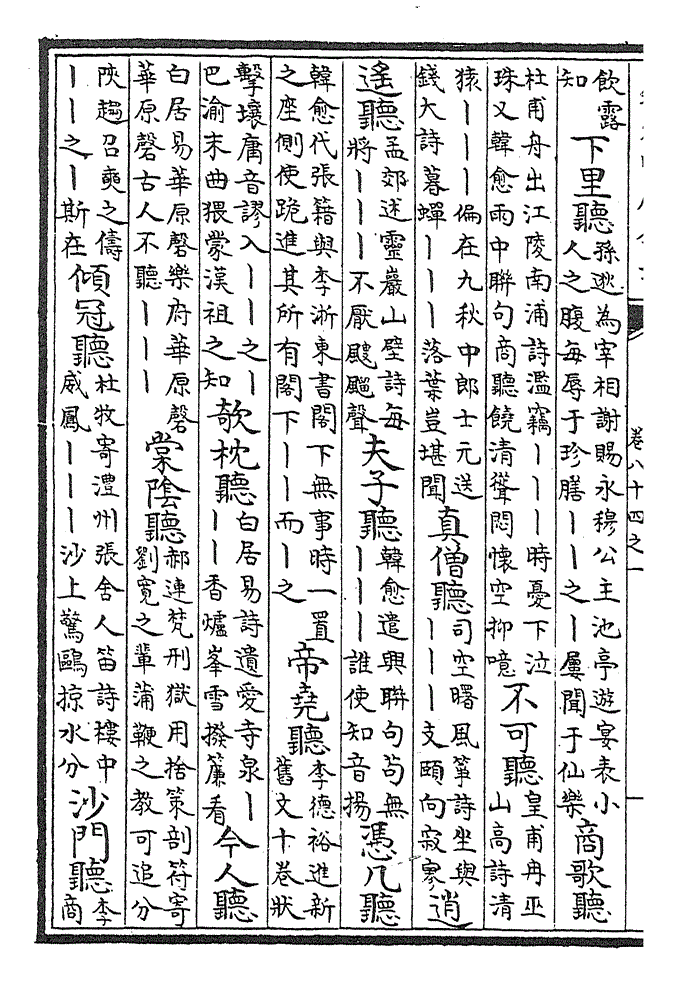 飲露知 下里聽 孫逖為宰相謝賜永穆公主池亭遊宴表小人之腹每辱于珍膳｜｜之｜屢聞于仙樂 商歌聽
杜甫舟出江陵南浦詩濫竊｜｜｜時憂下泣珠又韓愈雨中聯句商聽饒清聳悶懷空抑噫 不可聽 皇甫冉巫山高詩清
猿｜｜｜偏在九秋中郎士元送錢大詩暮蟬｜｜｜落葉豈堪聞 真僧聽 司空曙風箏詩坐與｜｜｜支頤向寂寥 逍
遙聽 孟郊述靈巖山壁詩每將｜｜｜不厭颼飀聲 夫子聽 韓愈遣興聯句苟無｜｜｜誰使知音揚 憑几聽
韓愈代張籍與李浙東書閣下無事時一置之座側使跪進其所有閣下｜｜而｜之 帝堯聽 李德裕進新舊文十卷狀
擊壤庸音謬入｜｜之｜巴渝末曲猥蒙漢祖之知 欹枕聽 白居易詩遺愛寺泉｜｜｜香爐峯雪撥簾看 今人聽
白居易華原磬樂府華原磬華原磬古人不聽｜｜｜ 棠陰聽 郝連梵刑獄用捨策剖符寄劉寬之輩蒲鞭之教可追分
陝趨召奭之儔｜｜之｜斯在 傾冠聽 杜牧寄澧州張舍人笛詩樓中威鳳｜｜｜沙上驚鷗掠水分 沙門聽 李商
卷八十四之一